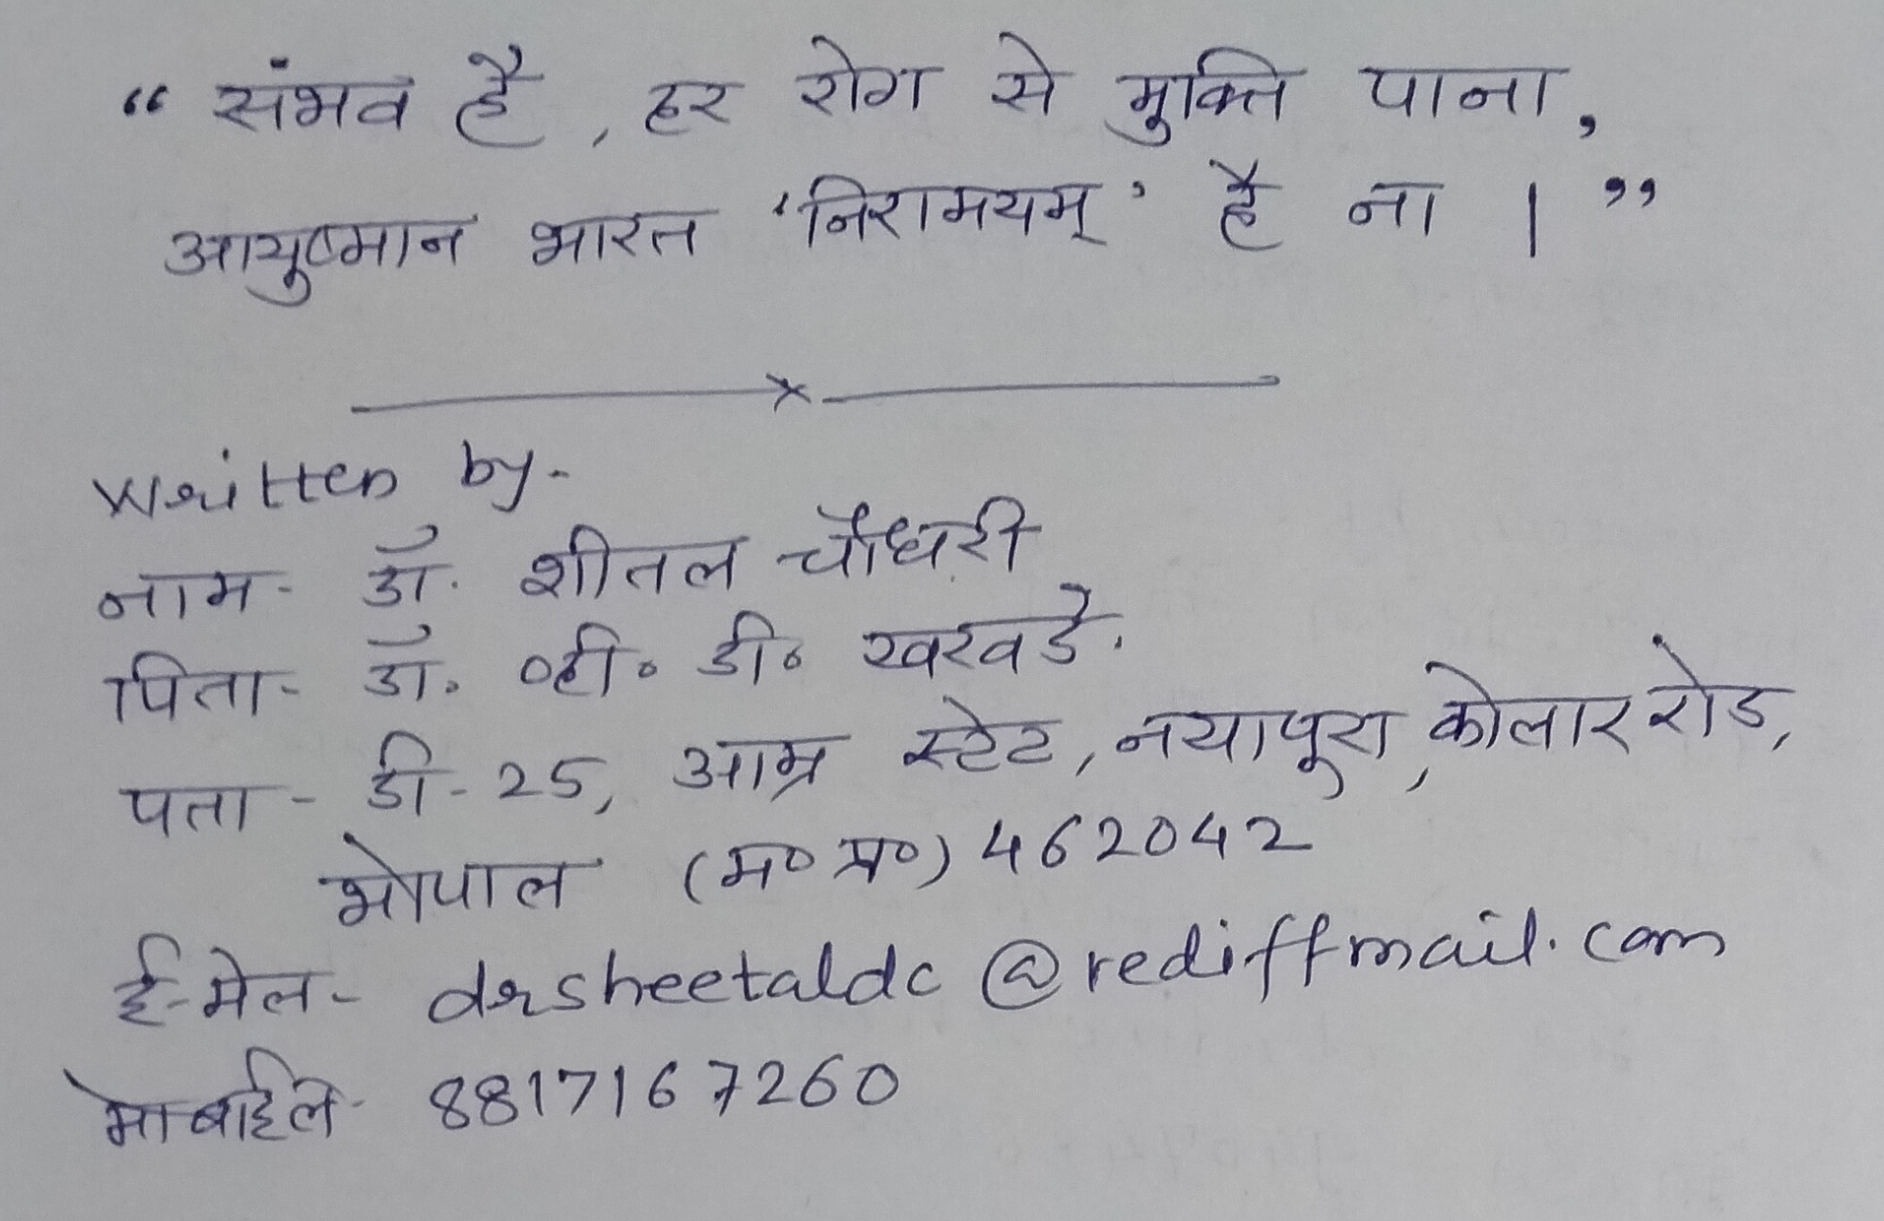 “ संभव है, हर रोग से मुक्ति पाना,
आयुष्मान भारत ‘निरामयम्’ है ना । ”
Written by-
नाम - डॉ. शीतल चौधरी
पिता - डॉ. व्ही० डी० खरवडे.
पता - डी-25, आम्र स्टेट, नयापूरा, कोलार रोड,
भोपाल (म० प्र०) 462042
ई-मेल- drsheetaldc@rediffmail.com
मोबाईल- 8817167260